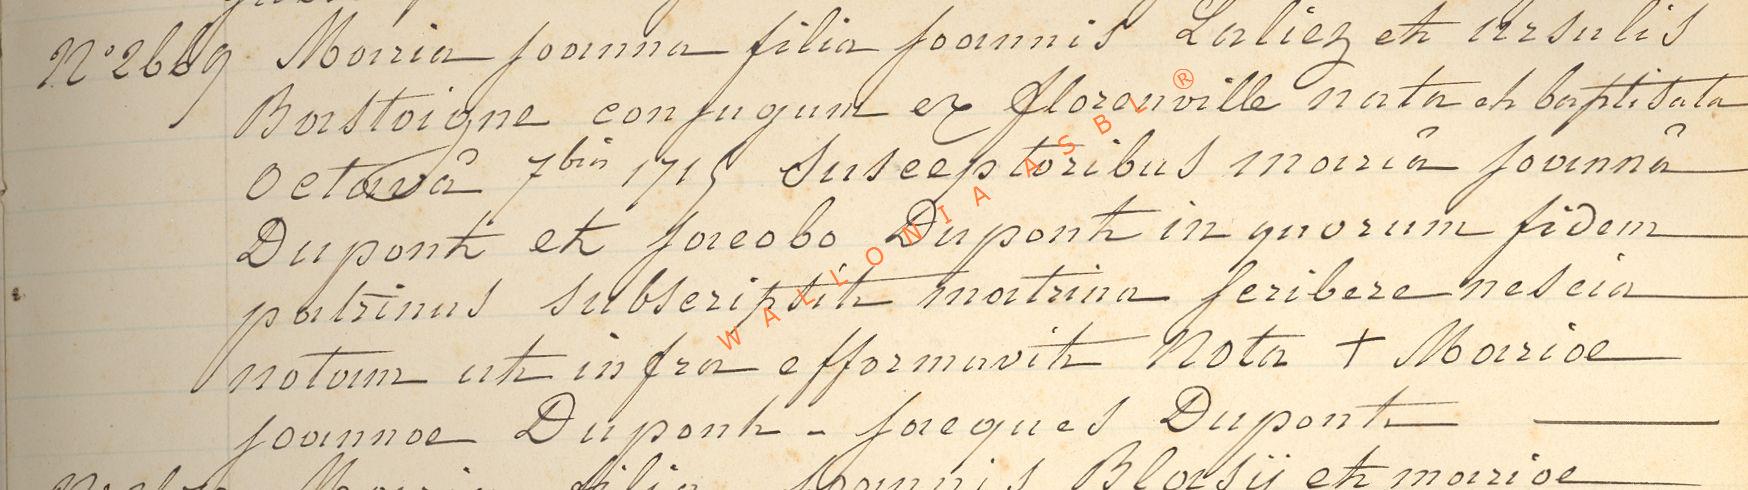 N° 2669 Maria joanna filia joannis Laliez et ursulis
Bastoigne conjugum ex florenville nata et baptisata
Octavâ 7bris 1715 Susceptoribus mariâ joannâ
Dupont et jacobo Dupont in quorum fidem
patrinus subscripsit matrina scribere nescia
notam ut infra efformavit Nota + Mariae
joannae Dupont - jacques Dupont
Maria filia joannis Blasii et mariae
WALLONIA ASBL ®